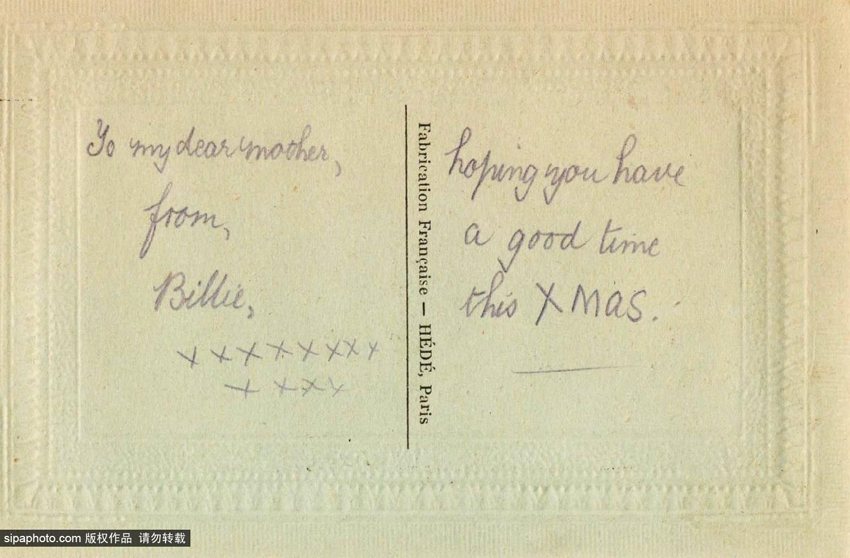 To my dear mother,
from,
Billie,
x x x x x x x x
x x x x
Fabrication Française — HÉDÉ, Paris
hoping you have
a good time
this X MAS.
sipaphoto.com 版权作品 请勿转载